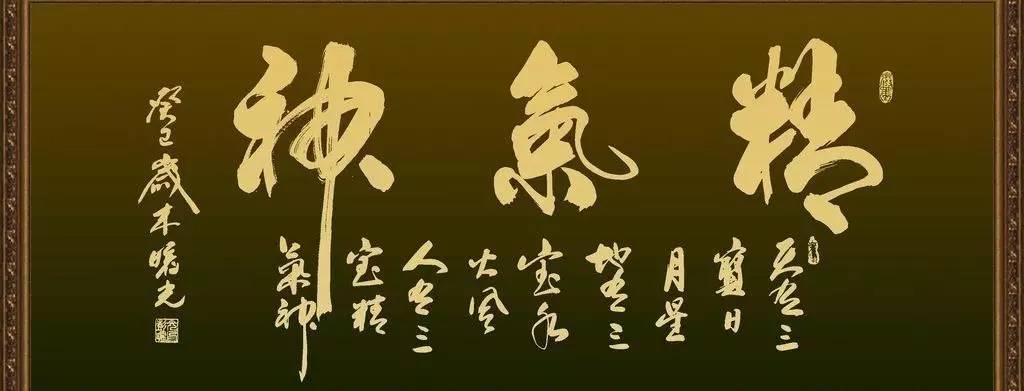 精氣神
天有三
寶日
月星
地有三
宝水
火风
人有三
宝精
氣神
癸巳歲 光